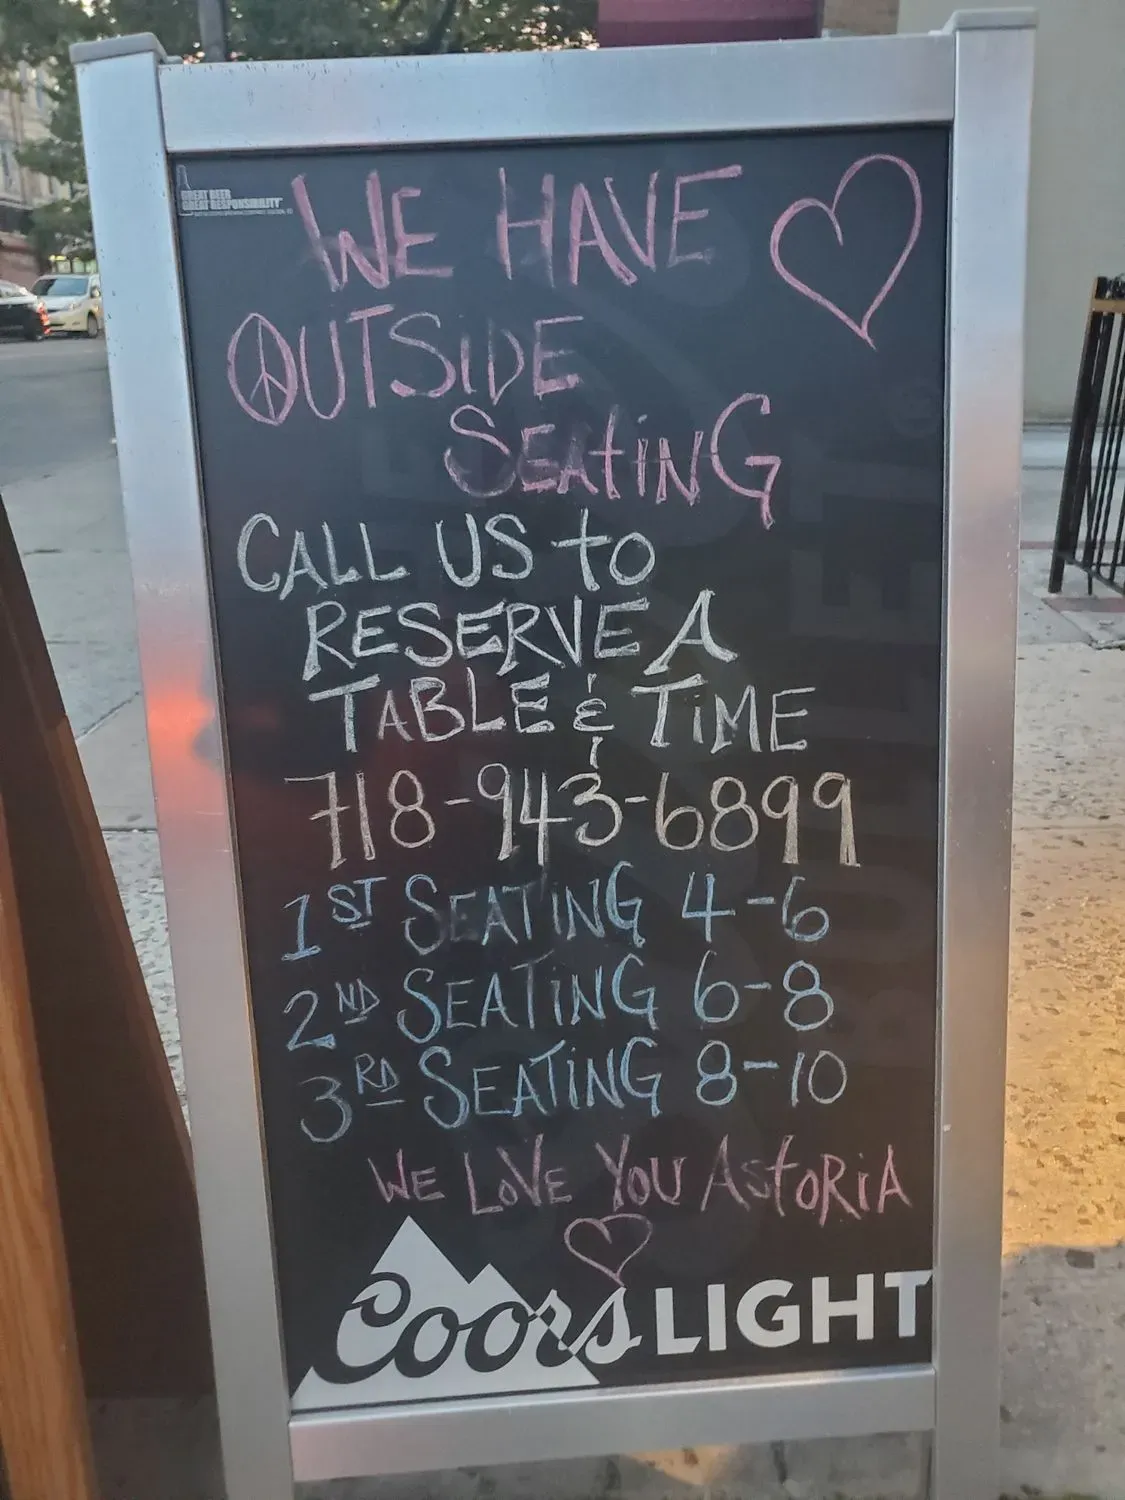 GREAT BEER
GREAT RESPONSIBILITY
WE HAVE
OUTSIDE
SEATING
CALL US to
RESERVE A
TABLE & TIME
718-943-6899
1ST SEATING 4-6
2ND SEATING 6-8
3RD SEATING 8-10
WE LOVE YOU AStORIA
Coors LIGHT